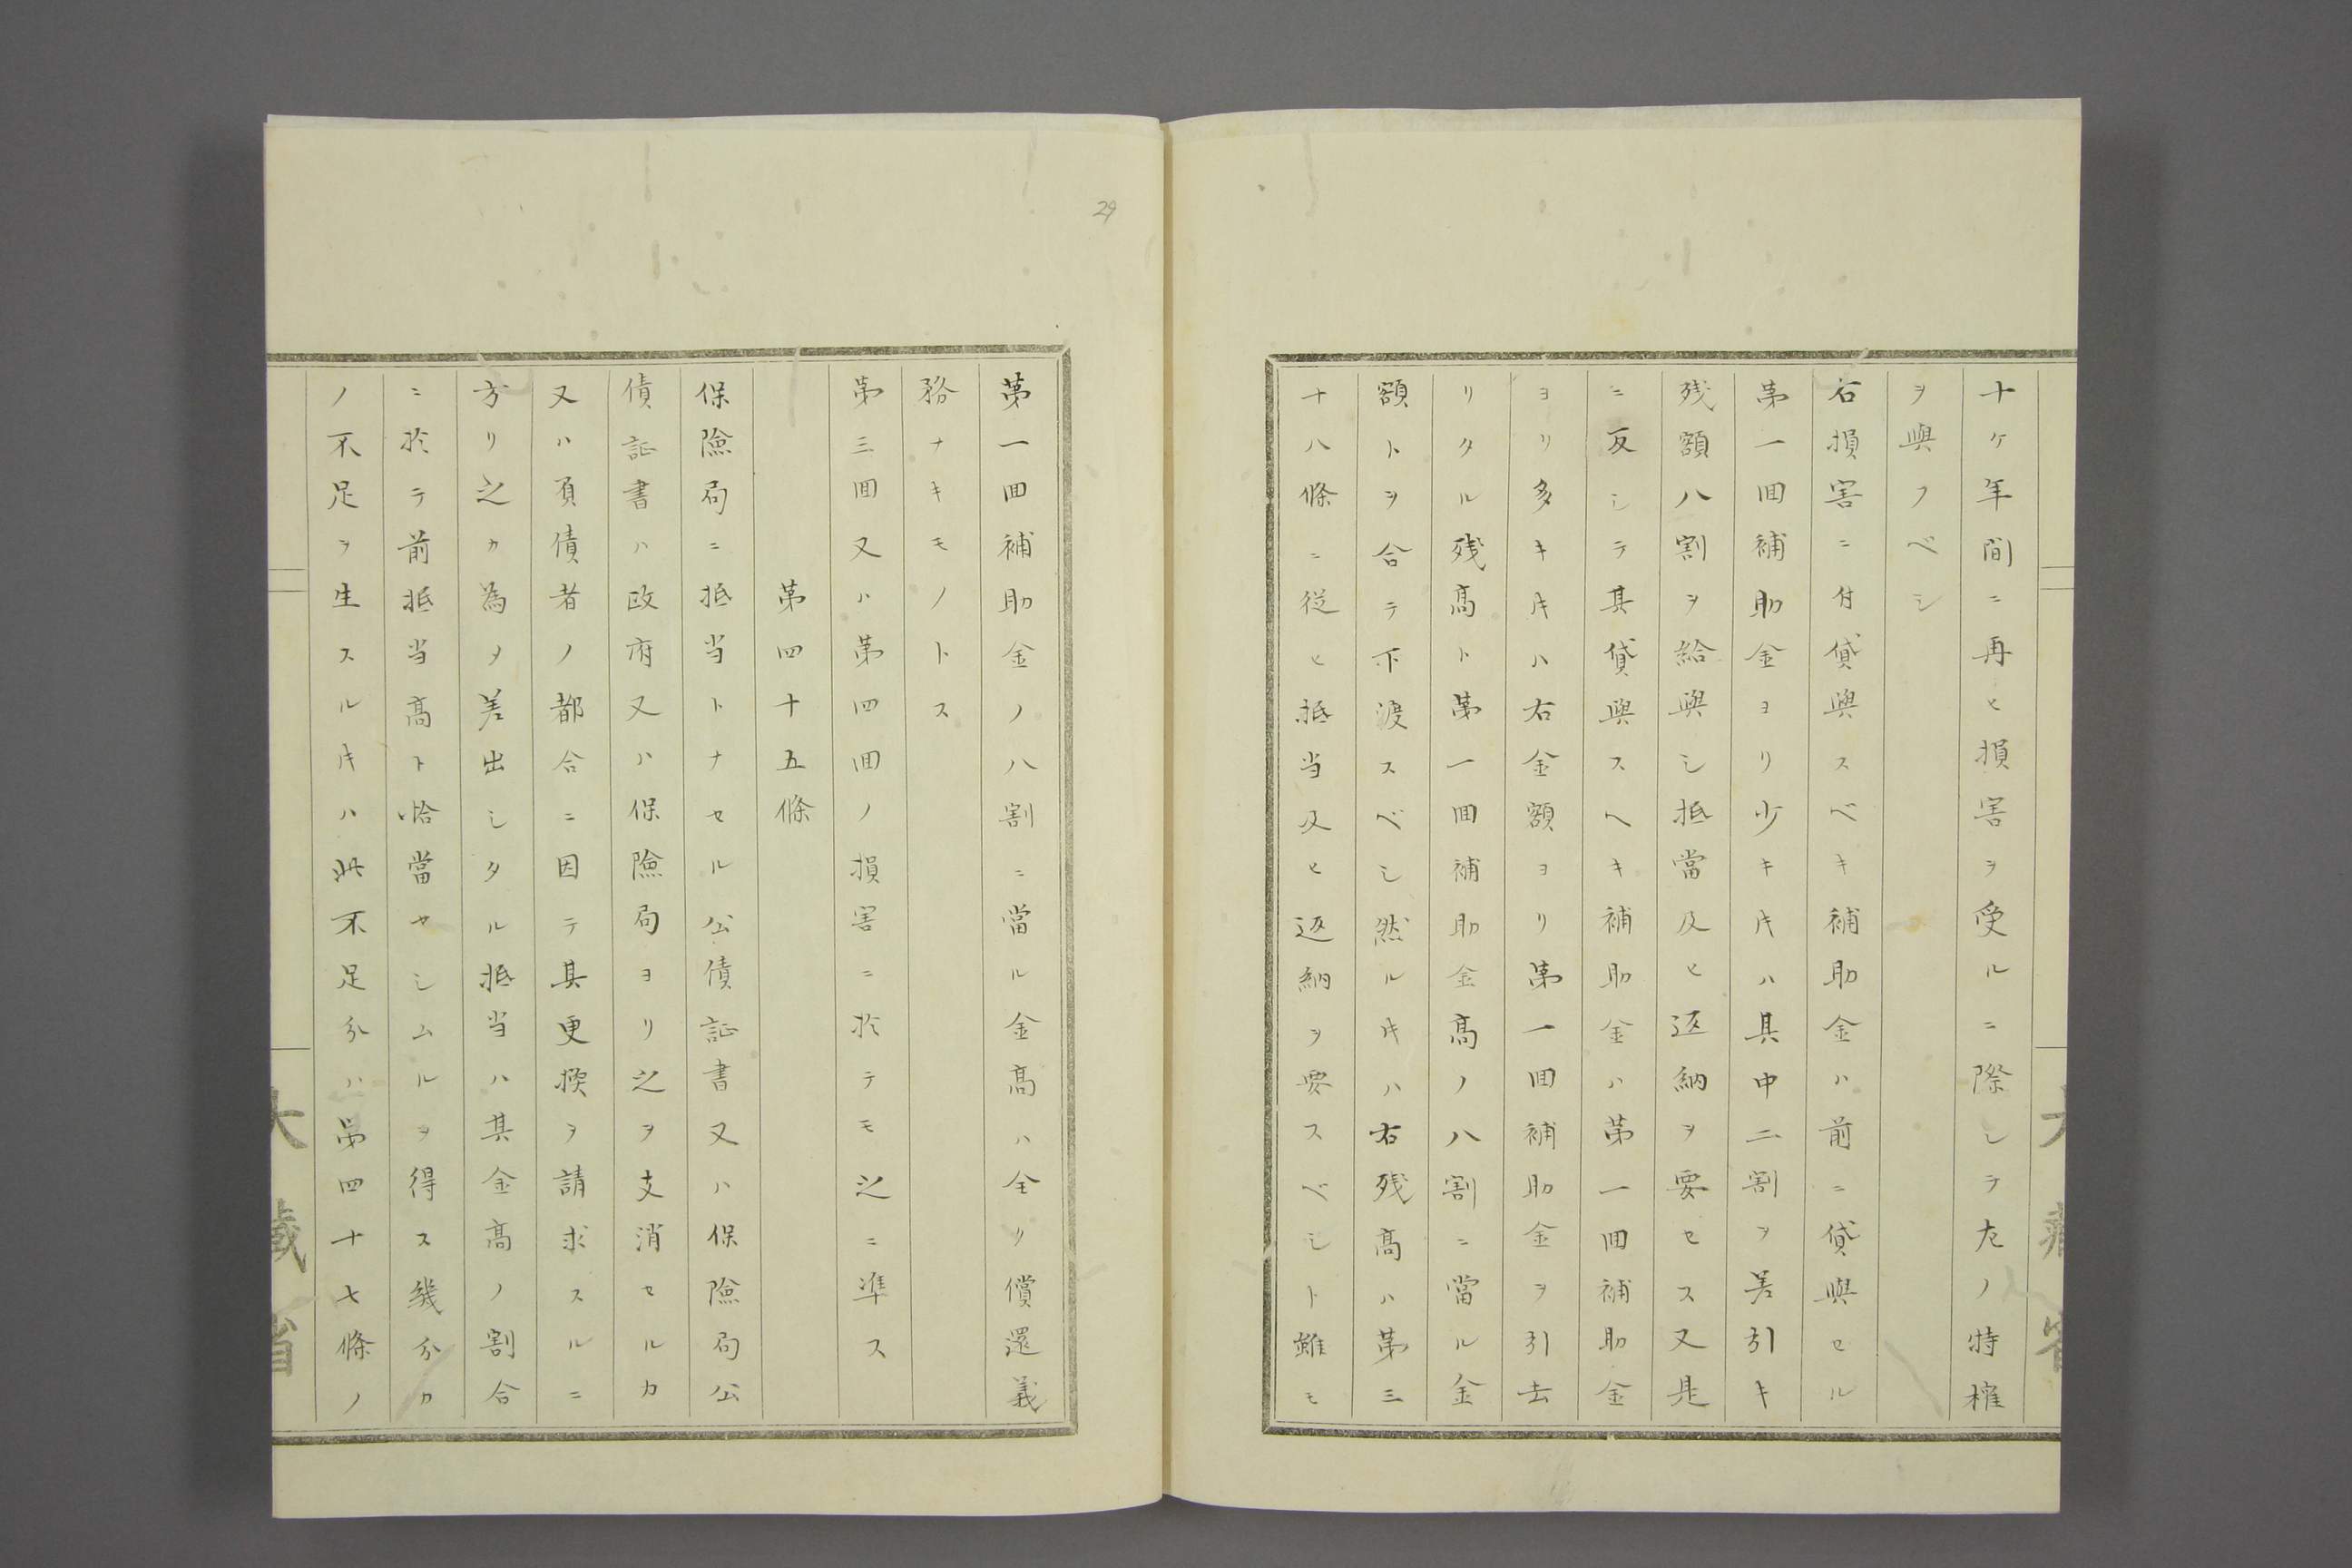 十ケ年間ニ再ヒ損害ヲ受ルニ際シテ左ノ特権
ヲ與フベシ
右損害ニ付貸與スベキ補助金ハ前ニ貸與セル
第一回補助金ヨリ少キ𪜈ハ其中二割ヲ差引キ
残額八割ヲ給與シ抵當及ヒ返納ヲ要セス又是
ニ反シテ其貸與スヘキ補助金ハ第一回補助金
ヨリ多キ𪜈ハ右金額ヨリ第一回補助金ヲ引去
リタル残高ト第一回補助金高ノ八割ニ當ル金
額トヲ合テ下渡スベシ然ル𪜈ハ右残高ハ第三
十八條ニ従ヒ抵当及ヒ返納ヲ要スベシト雖モ
大藏省
29
第一回補助金ノ八割ニ當ル金高ハ全リ償還義
務ナキモノトス
第三回又ハ第四回ノ損害ニ於テモ之ニ準ス
第四十五條
保險局ニ抵当トナセル公債証書又ハ保險局公
債証書ハ政府又ハ保險局ヨリ之ヲ支消セルカ
又ハ負債者ノ都合ニ因テ其更換ヲ請求スルニ
方リ之カ為メ差出シタル抵当ハ其金高ノ割合
ニ於テ前抵当高ト恰當セシムルヲ得ス幾分カ
ノ不足ヲ生スル𪜈ハ此不足分ハ第四十七條ノ
大藏省